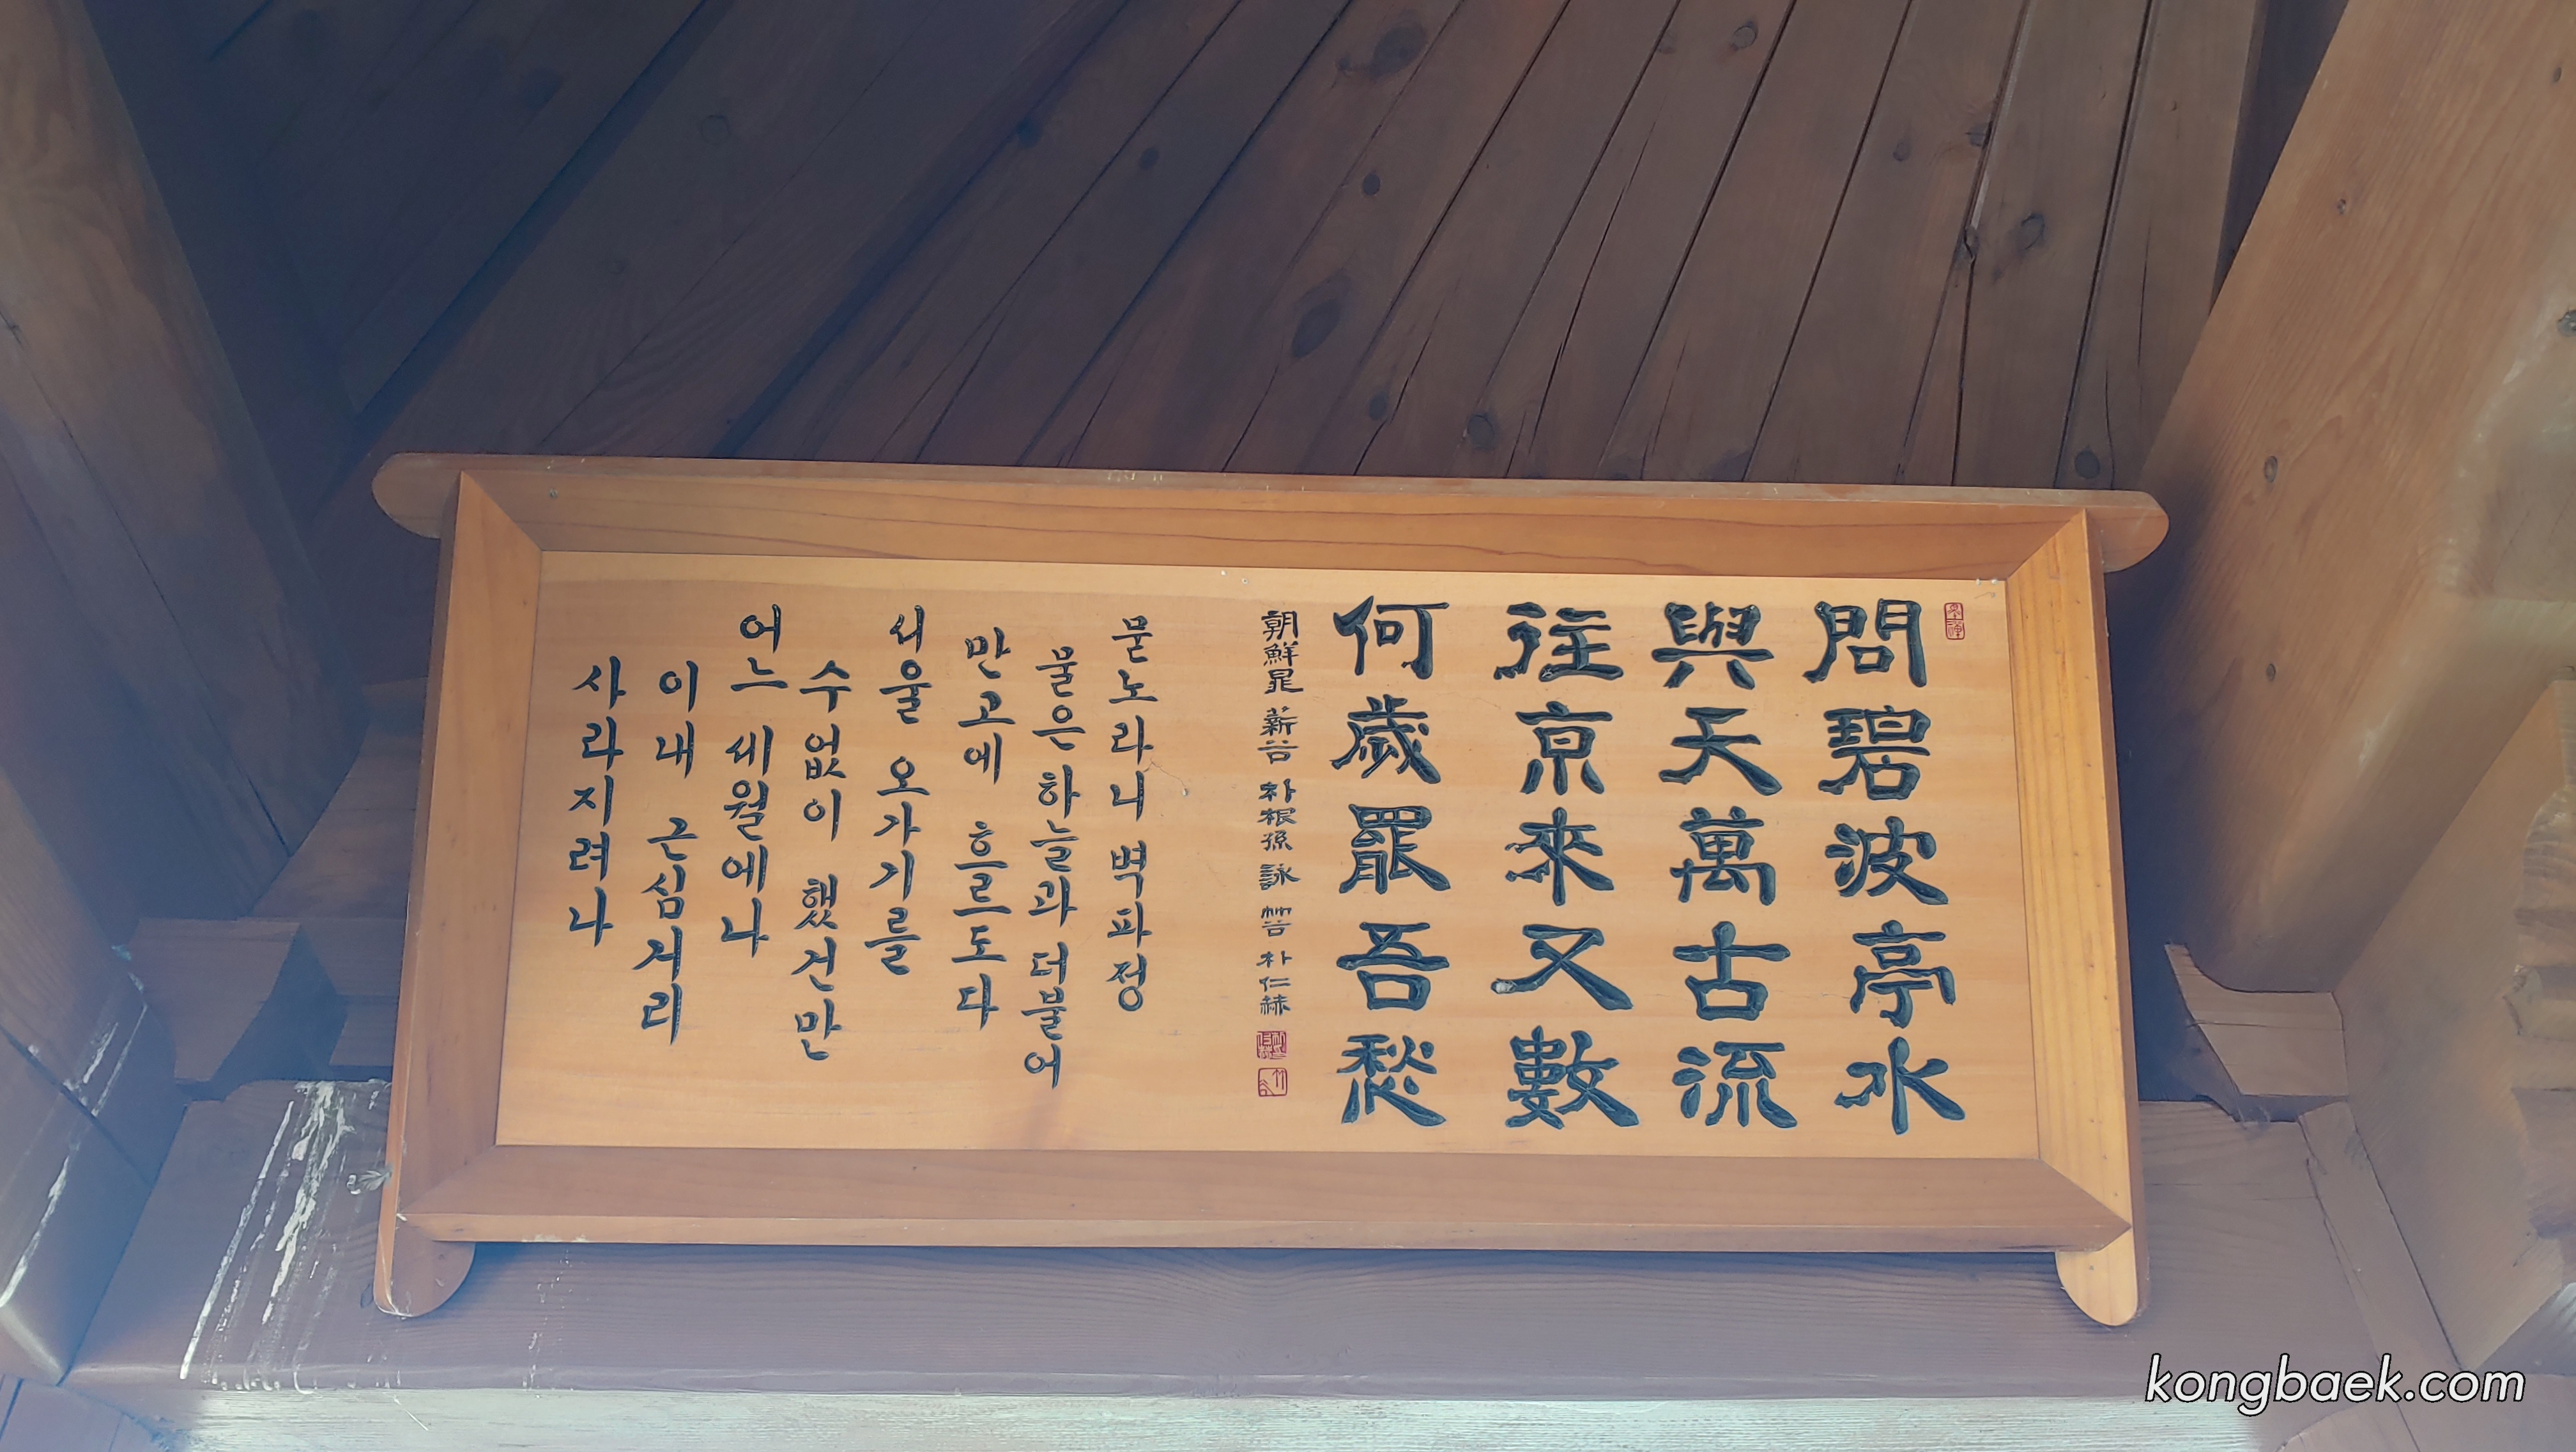 問碧波亭水
與天萬古流
往京來又數
何歲罷吾愁
朝鮮是 薪谷 朴根孫 詠 竹谷 朴仁赫
묻노라니 벽파정
물은 하늘과 더불어
만고에 흐르도다
서울 오가기를
수없이 했건만
어느 세월에나
이내 근심거리
사라지려나
kongbaek.com